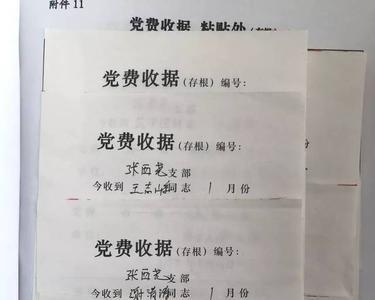 附件 11
党费收据 粘贴处(存根)
党费收据(存根)编号:
党费收据(存根)编号:
张西尧支部
今收到 王志 同志 1 月份
党费收据(存根)编号:
张西尧支部
今收到 同志 1 月份